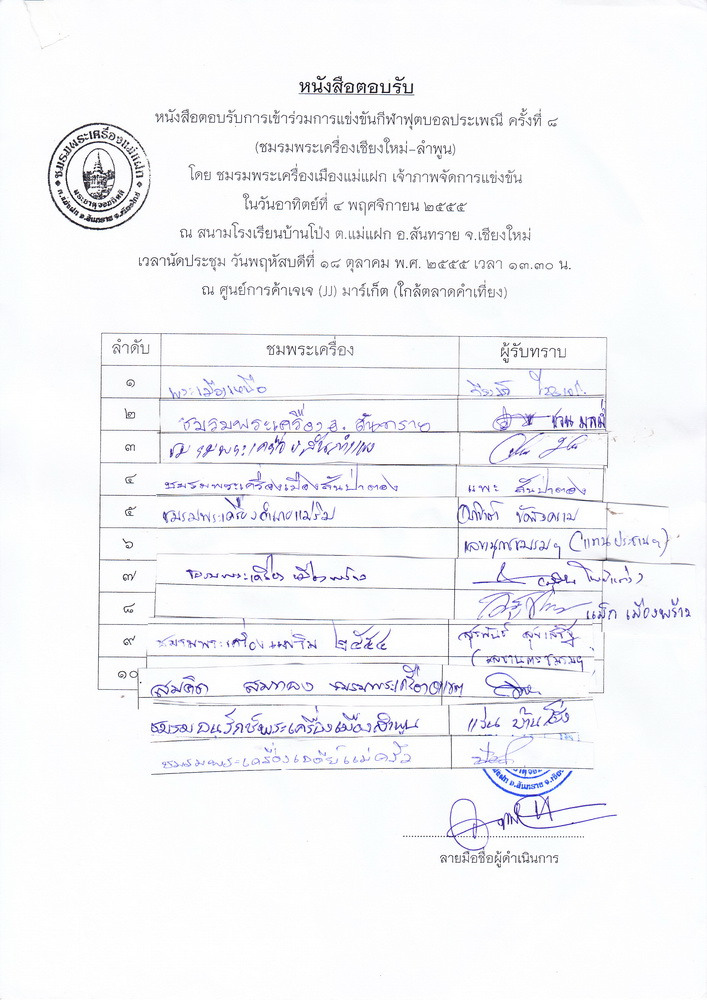 หนังสือตอบรับ
หนังสือตอบรับการเข้าร่วมการแข่งขันกีฬาฟุตบอลประเพณี ครั้งที่ ๘
(ชมรมพระเครื่องเชียงใหม่-ลำพูน)
โดย ชมรมพระเครื่องเมืองแม่แฝก เจ้าภาพจัดการแข่งขัน
ในวันอาทิตย์ที่ ๔ พฤศจิกายน ๒๕๕๕
ณ สนามโรงเรียนบ้านโป่ง ต.แม่แฝก อ.สันทราย จ.เชียงใหม่
เวลานัดประชุม วันพฤหัสบดีที่ ๑๘ ตุลาคม พ.ศ. ๒๕๕๕ เวลา ๑๓.๓๐ น.
ณ ศูนย์การค้าเจเจ (JJ) มาร์เก็ต (ใกล้ตลาดคำเที่ยง)
ชมรมพระเครื่องแม่แฝก
ต.แม่แฝก อ.สันทราย จ.เชียงใหม่
ลำดับ ชมพระเครื่อง ผู้รับทราบ
๑ พระเมืองเหนือ
๒ ชมรมพระเครื่อง อ. สันทราย
๓
๔ ชมรมพระเครื่องเมืองสันป่าตอง แพะ สันป่าตอง
๕ ชมรมพระเครื่องอำเภอแม่ริม
๖ เลขานุการชมรมฯ (แทนประธานฯ)
๗ ชมรมพระเครื่อง เมืองพร้าว
๘ แม็ก เมืองพร้าว
๙ ชมรมพระเครื่องแม่ริม ๒๕๕๔
๑๐ สมคิด
ชมรมอนุรักษ์พระเครื่องเมืองลำพูน แว่น บ้านโฮ่ง
ชมรมพระเครื่องเจดีย์แม่ครัว
ต.แม่แฝก อ.สันทราย จ.เชียงใหม่
ลายมือชื่อผู้ดำเนินการ